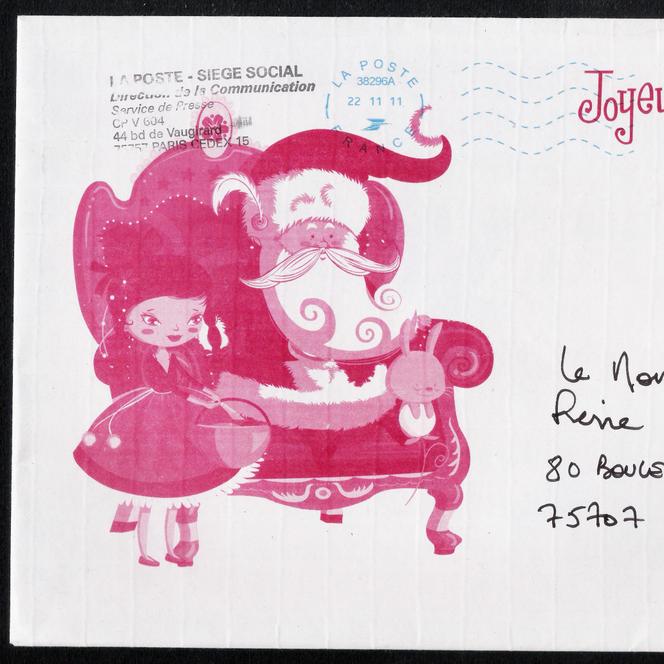 LA POSTE - SIEGE SOCIAL
Direction de la Communication
Service de Presse
CP V 604
44 bd de Vaugirard
75757 PARIS CEDEX 15
LA POSTE
38296A
22 11 11
FRANCE
Joyeu
Le
Reine
80 BOULE
75707